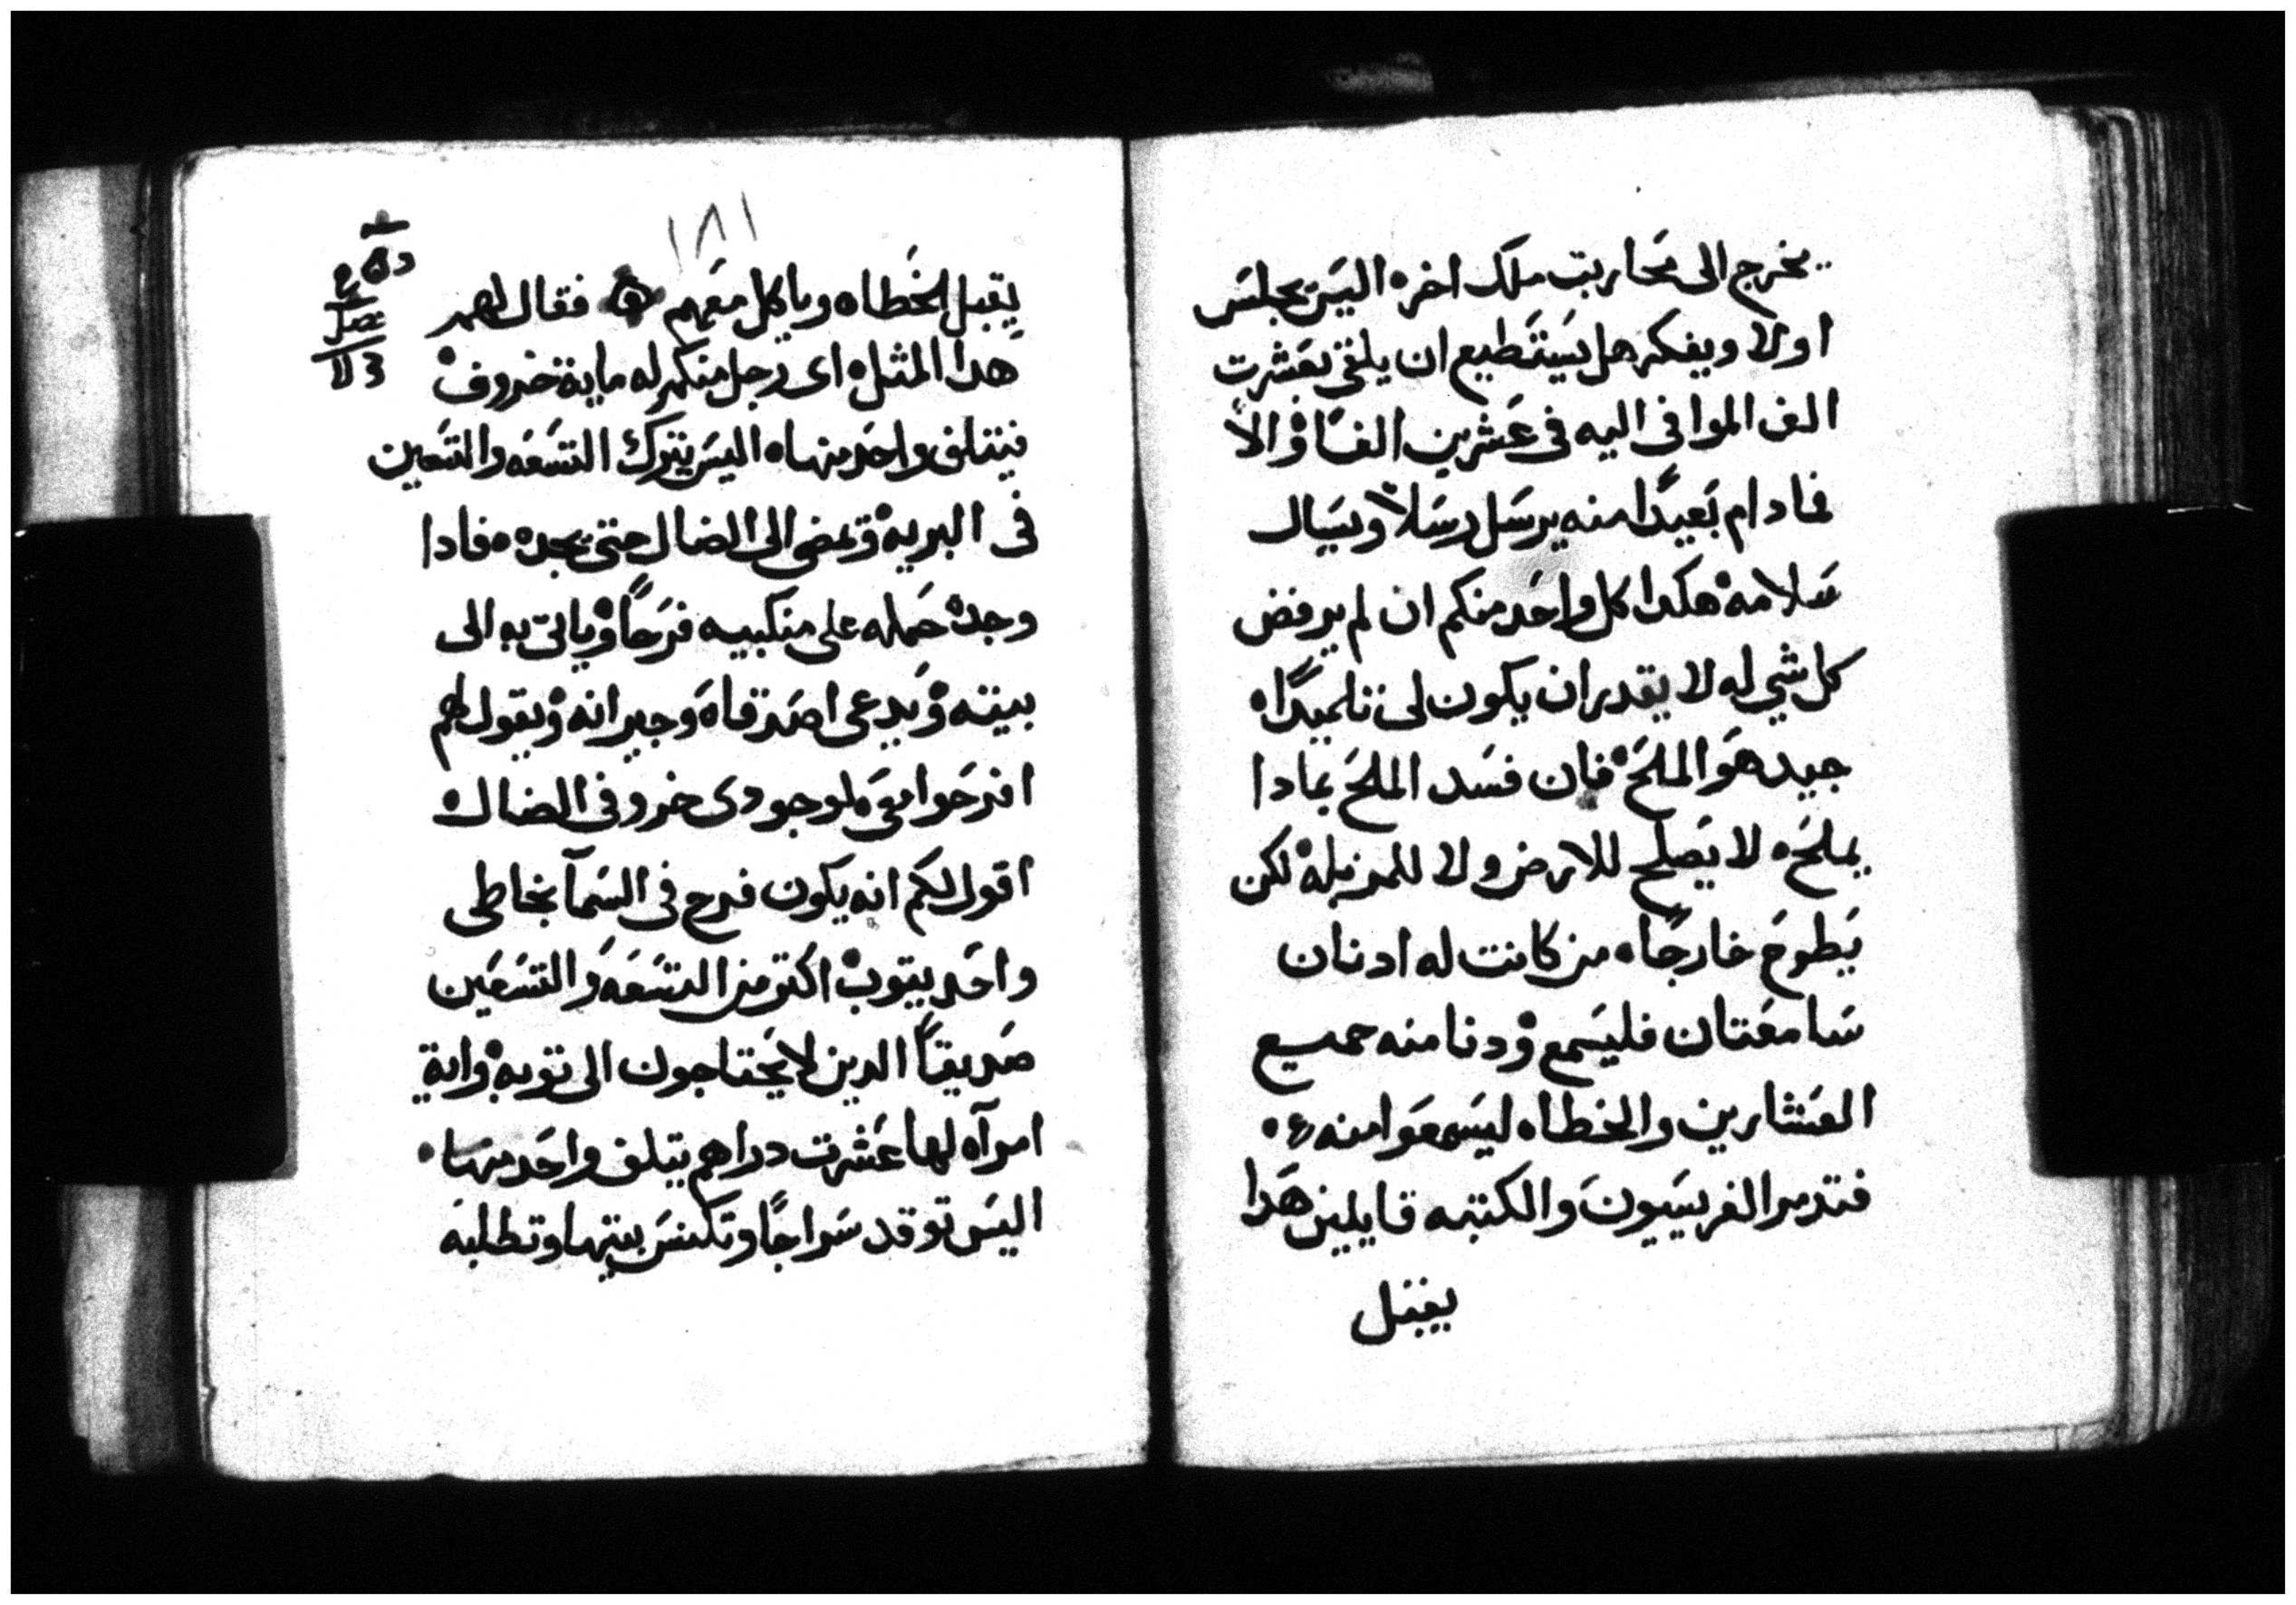 يخرج الى محاربت ملك اخره اليس يجلس
اولا ويفكر هل يستطيع ان يلتقى بعشرت
الف الموافى اليه فى عشرين الفًا والا
فمادام بعيدًا منه يرسل رسلًا ويسال
سلامه هكدا كل واحد منكم ان لم يرفض
كل شي له لا يقدر ان يكون لى تلميدًا
جيد هو الملح فان فسد الملح بمادا
يملح لا يصلح للارض ولا للمزبله لكن
يطوح خارجًا من كانت له ادنان
سامعتان فليسمع ودنا منه جميع
العشارين والخطاه ليسمعوا منه
فتدمر الفريسيون والكتبه قايلين هدا
يقبل
١٨١
يقبل الخطاه وياكل معهم فقال لهم
هدا المثل اى رجل منكم له ماية خروف
فيتلف واحد منها اليس يترك التسعه والتسعين
فى البريه ويمضى الى الضال حتى يجده فادا
وجده حمله على منكبيه فرحًا وياتى به الى
بيته ويدعى اصدقاه وجيرانه ويقول لهم
افرحوا معى لوجودى خروفى الضال
اقول لكم انه يكون فرح فى السمآ بخاطى
واحد يتوب اكتر من التسعه والتسعين
صديقًا الدين لا يحتاجون الى توبه واية
امرآه لها عشرت دراهم يتلف واحد منها
اليس توقد سراجًا وتكنس بيتها وتطلبه